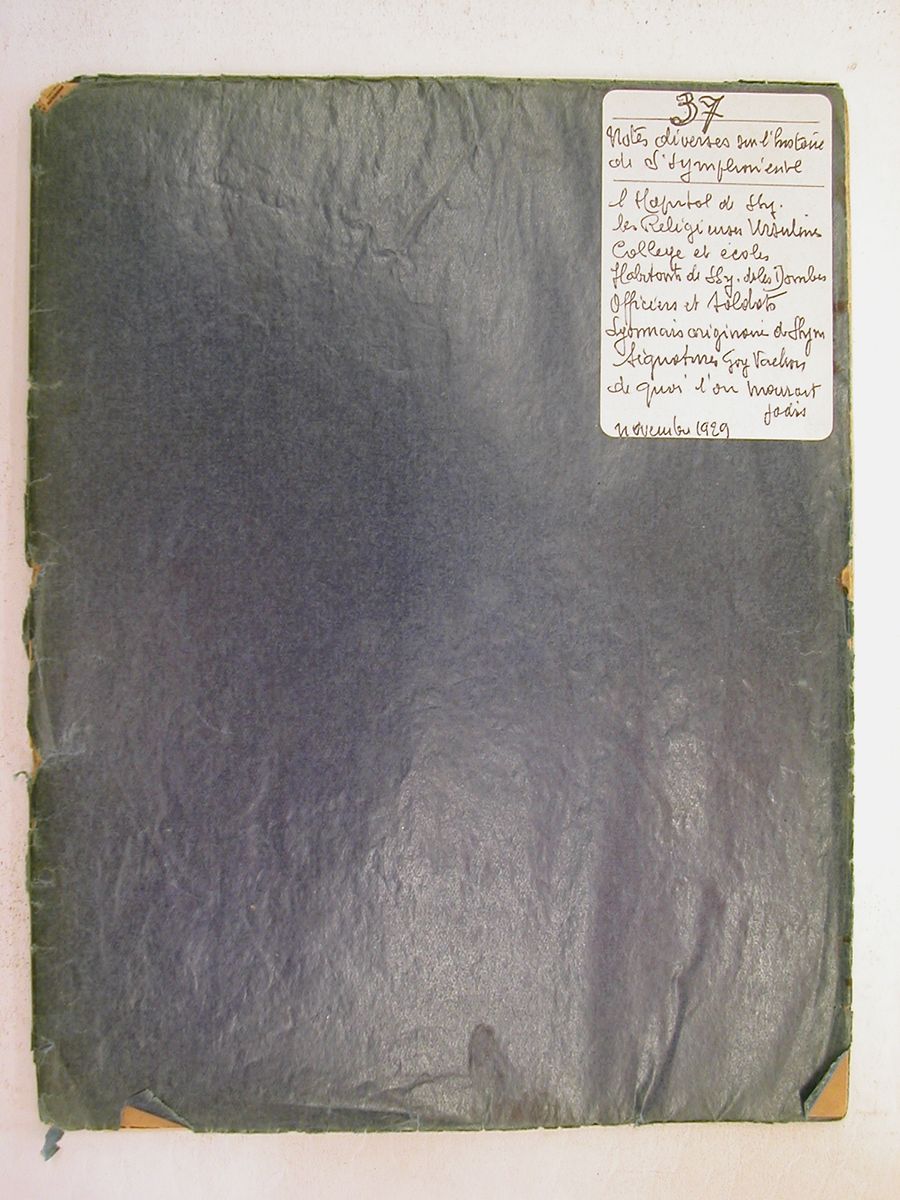 37
Notes diverses sur l'histoire
de St Symphorien
l'Hopital de Sty.
les Religieuses Ursulines
College et écoles
Habitants de Sty. de les Dombes
Officiers et Soldats
Lyonnais originaire de Stym
Signatures Goy Vachon
de quoi l'on mourait
jadis
novembre 1929